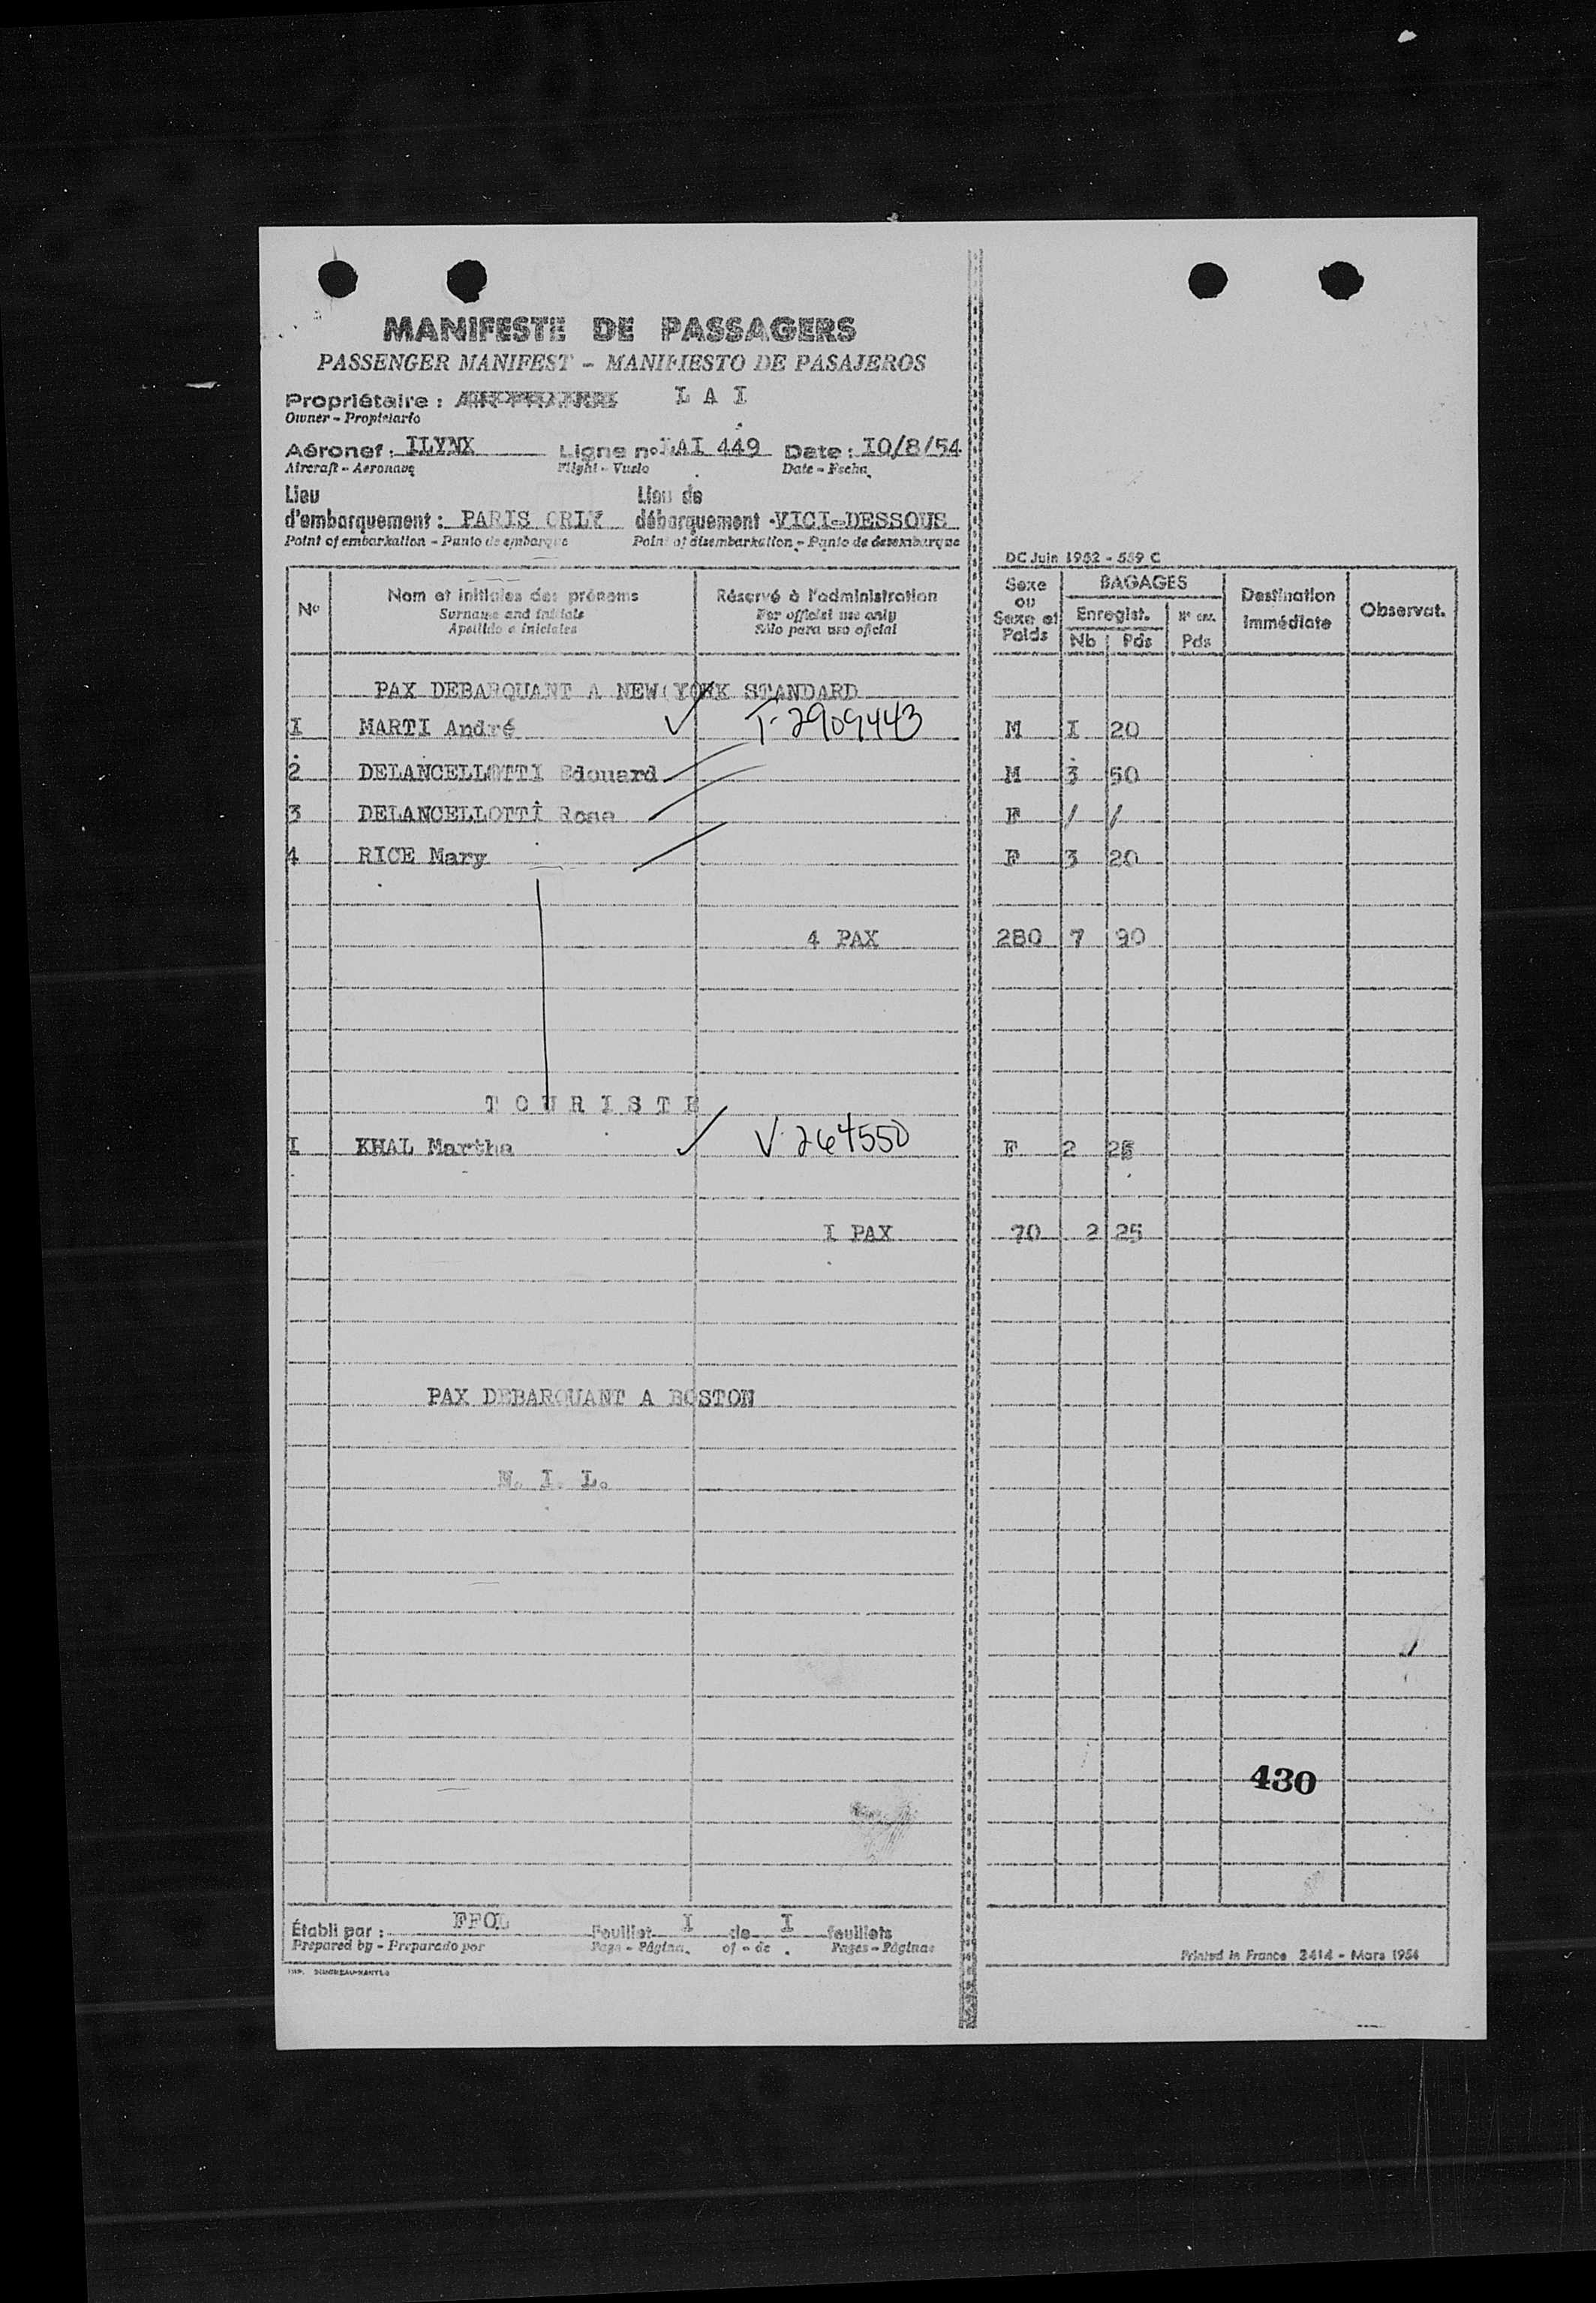 MANIFESTE DE PASSAGERS
PASSENGER MANIFEST - MANIFIESTO DE PASAJEROS
Propriétaire : AIR FRANCE L A I
Owner - Propietario
Aéronef : ILYNX Ligne no LAI 449 Date : IO/8/54
Aircraft - Aeronave Flight - Vuelo Date - Fecha
Lieu Lieu de
d'embarquement : PARIS ORLY débarquement VICI-DESSOUS
Point of embarkation - Punto de embarque Point of disembarkation - Punto de desembarque
DC Juin 1952 - 559 C
No Nom et initiales des prénoms Réservé à l'administration Sexe ou Sexe et Poids BAGAGES Destination Immédiate Observat.
Surname and initials For official use only Enregist.
Apellido e iniciales Sólo para uso oficial Nb Pds Pds
PAX DEBARQUANT A NEW YORK STANDARD
I MARTI André T-2909443 M I 20
2 DELANCELLOTTI Edouard M 3 50
3 DELANCELLOTTI Rose F / /
4 RICE Mary F 3 20
4 PAX 280 7 90
T O U R I S T E
I KHAL Martha V-264550 F 2 25
I PAX 70 2 25
PAX DEBARQUANT A BOSTON
N. I. L.
430
Établi par : FFOL Feuillet I de I feuillets
Prepared by - Preparado por Page - Página of - de Pages - Páginas
Printed in France 2414 - Mars 1954